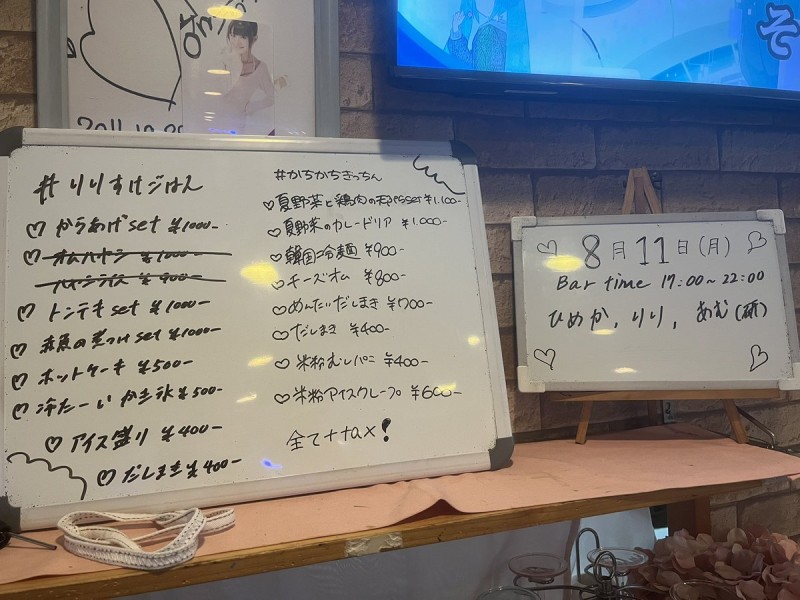 2011.10.2
#りりすけごはん
♡からあげset ¥1000-
♡オムハヤシ ¥1000-
ハヤシライス ¥900-
♡トンテキset ¥1000-
♡赤魚の煮つけset ¥1000-
♡ホットケーキ ¥500-
♡冷たーいかき氷 ¥500-
♡アイス盛り ¥400-
♡だしまき ¥400-
#かちかちきっちん
♡夏野菜と鶏肉の set ¥1.100-
♡夏野菜のカレードリア ¥1.000-
♡韓国冷麺 ¥900-
♡チーズオム ¥800-
♡めんたいだしまき ¥700-
♡だしまき ¥400-
♡米粉むしパン ¥400-
♡米粉アイスクレープ ¥600-
全て+tax!
そ
8月11日(月)
Bar time 17:00~22:00
ひめか, りり, あむ(研)